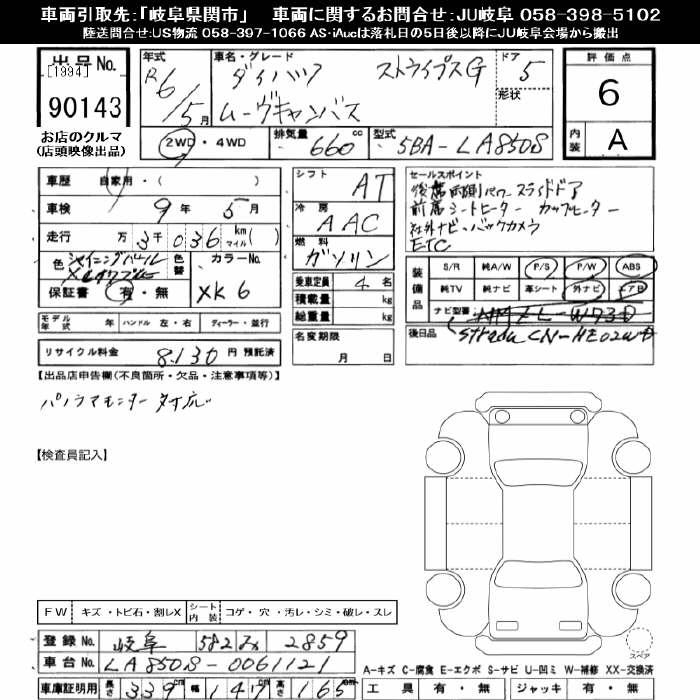 車両引取先:「岐阜県関市」 車両に関するお問合せ:JU岐阜 058-398-5102
陸送問合せ:US物流 058-397-1066 AS・iAucは落札日の5日後以降にJU岐阜会場から搬出
出品No.
[1994]
90143
お店のクルマ
(店頭映像出品)
年式
R6/5月
車名・グレード
ダイハツ ストライプスG
ムーヴキャンバス
ドア
5
形状
評価点
6
内装
A
2WD・4WD
排気量 660 cc
型式 5BA-LA850S
車歴 自家用・( )
車検 9年 5月
走行 万 3千 036 km マイル ( )
色 シャイニングパール
色替
カラーNo.
XK6
保証書 有・無
モデル年式 年 ハンドル 左・右 ディーラー・並行
リサイクル料金 8130 円 預託済
シフト
AT
冷房
AAC
燃料
ガソリン
乗車定員 4 名
積載量 kg
総重量 kg
名変期限
月 日
セールスポイント
後席両側パワースライドドア
前席シートヒーター カップヒーター
社外ナビ・バックカメラ
ETC
装備品
S/R 純A/W P/S P/W ABS
純TV 純ナビ 革シート 外ナビ エアB
ナビ型番
後日品
Strada CN-HE02WD
【出品店申告欄(不良箇所・欠品・注意事項等)】
パノラマモニター対応
【検査員記入】
FW キズ・トビ石・割レX シート内装 コゲ・穴・汚レ・シミ・破レ・スレ
登録No. 岐阜 582 み 2859
車台No. LA850S-0061121
車庫証明用 長さ 339 cm 幅 147 cm 高さ 165 cm
スペア
A-キズ C-腐食 E-エクボ S-サビ U-凹ミ W-補修 XX-交換済
工具 有・無 ジャッキ 有・無